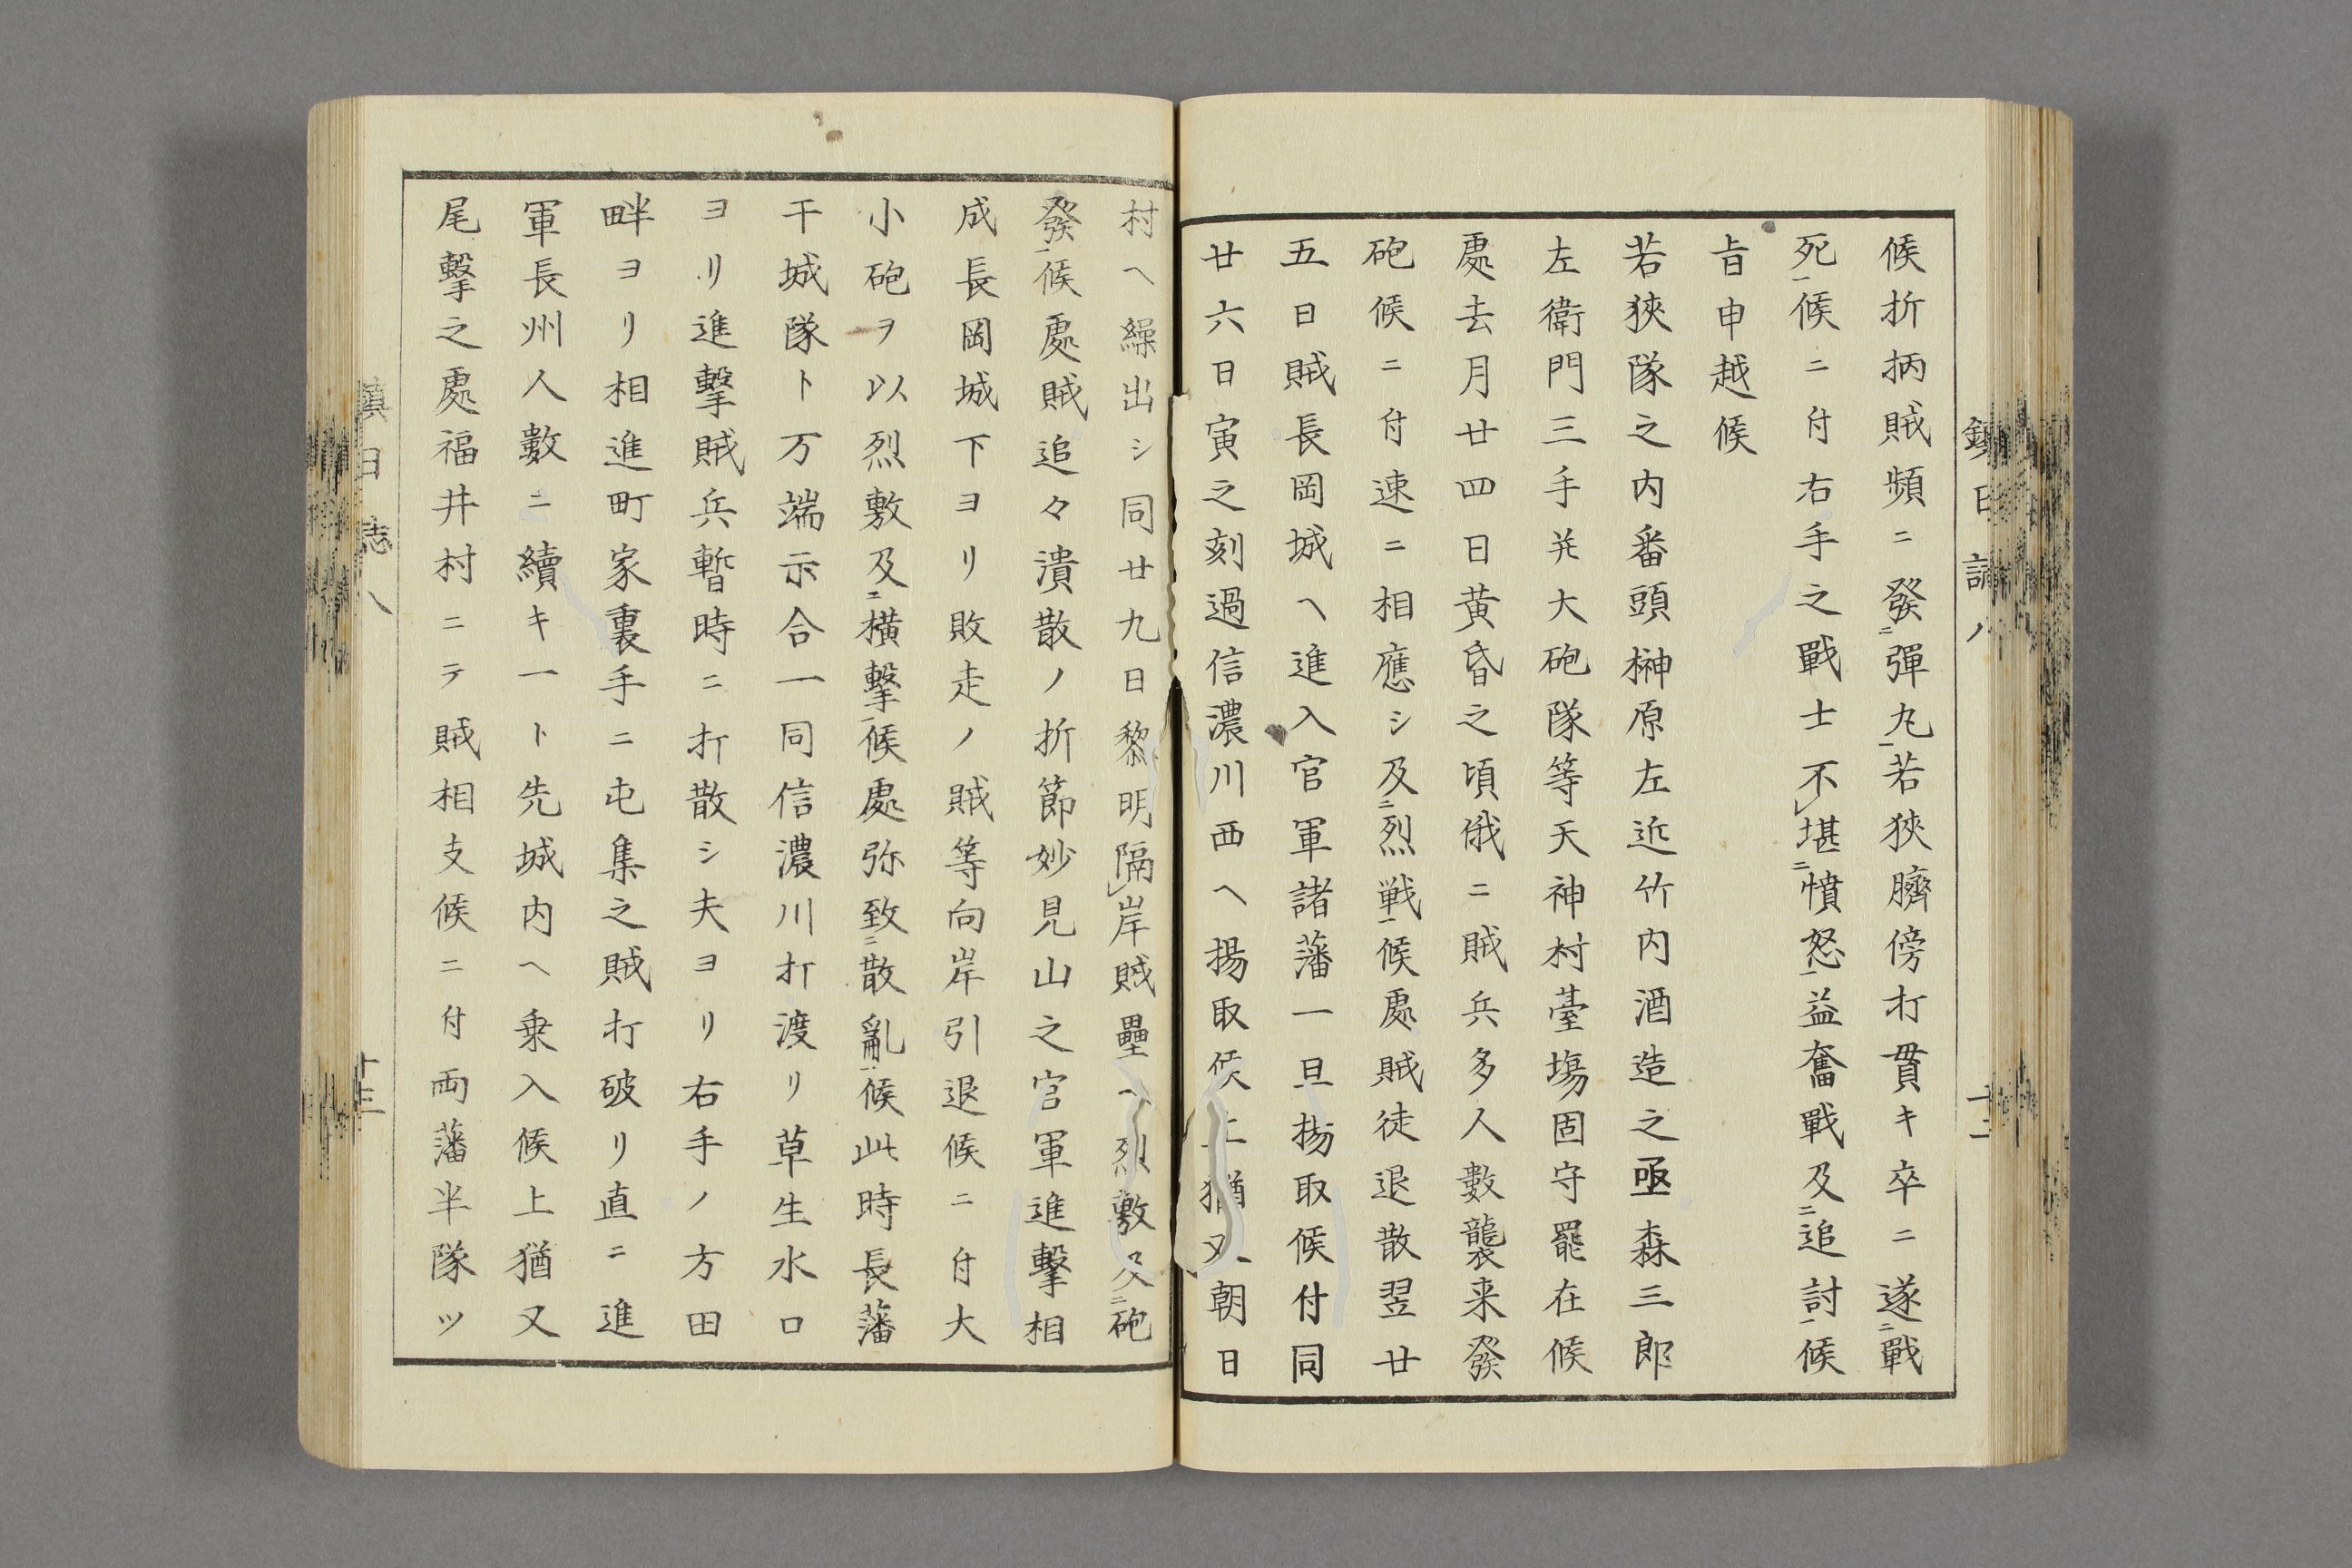 候折柄賊頻ニ發ニ彈丸一若狹臍傍打貫キ卒ニ遂ニ戰
死一候ニ付右手之戰士不レ堪ニ憤怒一益奮戰及ニ追討一候
旨申越候
若狹隊之内番頭榊原左近竹内酒造之亟森三郎
左衛門三手并大砲隊等天神村臺塲固守罷在候
處去月廿四日黄昏之頃俄ニ賊兵多人數襲来發
砲候ニ付速ニ相應シ及ニ烈戦一候處賊徒退散翌廿
五日賊長岡城ヘ進入官軍諸藩一旦揚取候付同
廿六日寅之刻過信濃川西ヘ揚取候上猶又朝日
村ヘ繰出シ同廿九日黎明隔レ岸賊壘ヘ烈敷及ニ砲
發一候處賊追々潰散ノ折節妙見山之官軍進擊相
成長岡城下ヨリ敗走ノ賊等向岸引退候ニ付大
小砲ヲ以烈敷及ニ橫擊一候處弥致ニ散亂一候此時長藩
干城隊ト万端示合一同信濃川打渡リ草生水口
ヨリ進擊賊兵暫時ニ打散シ夫ヨリ右手ノ方田
畔ヨリ相進町家裏手ニ屯集之賊打破リ直ニ進
軍長州人數ニ續キ一ト先城内ヘ乗入候上猶又
尾擊之處福井村ニテ賊相支候ニ付両藩半隊ツ
鎮日誌八
十三